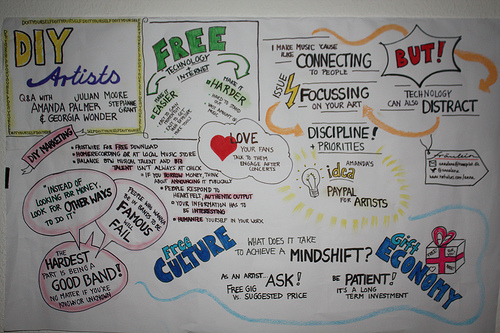 DIY
Artists
Q&A WITH JULIAN MOORE
AMANDA PALMER, STEPHANIE GRANT
& GEORGIA WONDER
FREE
TECHNOLOGY
+ INTERNET
MAKE IT
EASIER
MAKE IT
HARDER
I MAKE MUSIC 'CAUSE
I LIKE CONNECTING
TO PEOPLE
ISSUE
FOCUSSING
ON YOUR ART
BUT!
TECHNOLOGY
CAN ALSO DISTRACT
DISCIPLINE!
+ PRIORITIES
LOVE
YOUR FANS
TALK TO THEM
ENGAGE AFTER
CONCERTS
AMANDA'S
idea
PAYPAL
FOR ARTISTS
DIY MARKETING
FREE DOWNLOAD
HOMERECORDING OR AT LOCAL MUSIC STORE
BALANCE BTW MUSICAL TALENT AND BIZ
TALENT ISN'T ALWAYS AT CHECK
IF YOU BORROW MONEY, THINK
ABOUT ANNOUNCING IT PUBLICLY
PEOPLE RESPOND TO
HEARTFELT, AUTHENTIC OUTPUT
YOUR INFORMATION HAS TO
BE INTERESTING
HUMANIFY YOURSELF IN YOUR WORK
INSTEAD OF
LOOKING FOR MONEY
LOOK FOR OTHER WAYS
TO DO IT
PEOPLE WHO WANNA
BE IN BANDS TO BE
FAMOUS
WILL
FAIL
THE
HARDEST
PART IS BEING A
GOOD BAND!
NO MATTER IF YOU'RE
KNOWN OR UNKNOWN
Free
CULTURE
WHAT DOES IT TAKE
TO ACHIEVE A MINDSHIFT?
AS AN ARTIST ASK!
FREE GIG
VS. SUGGESTED PRICE
BE PATIENT!
IT'S A LONG
TERM INVESTMENT
Gift
ECONOMY